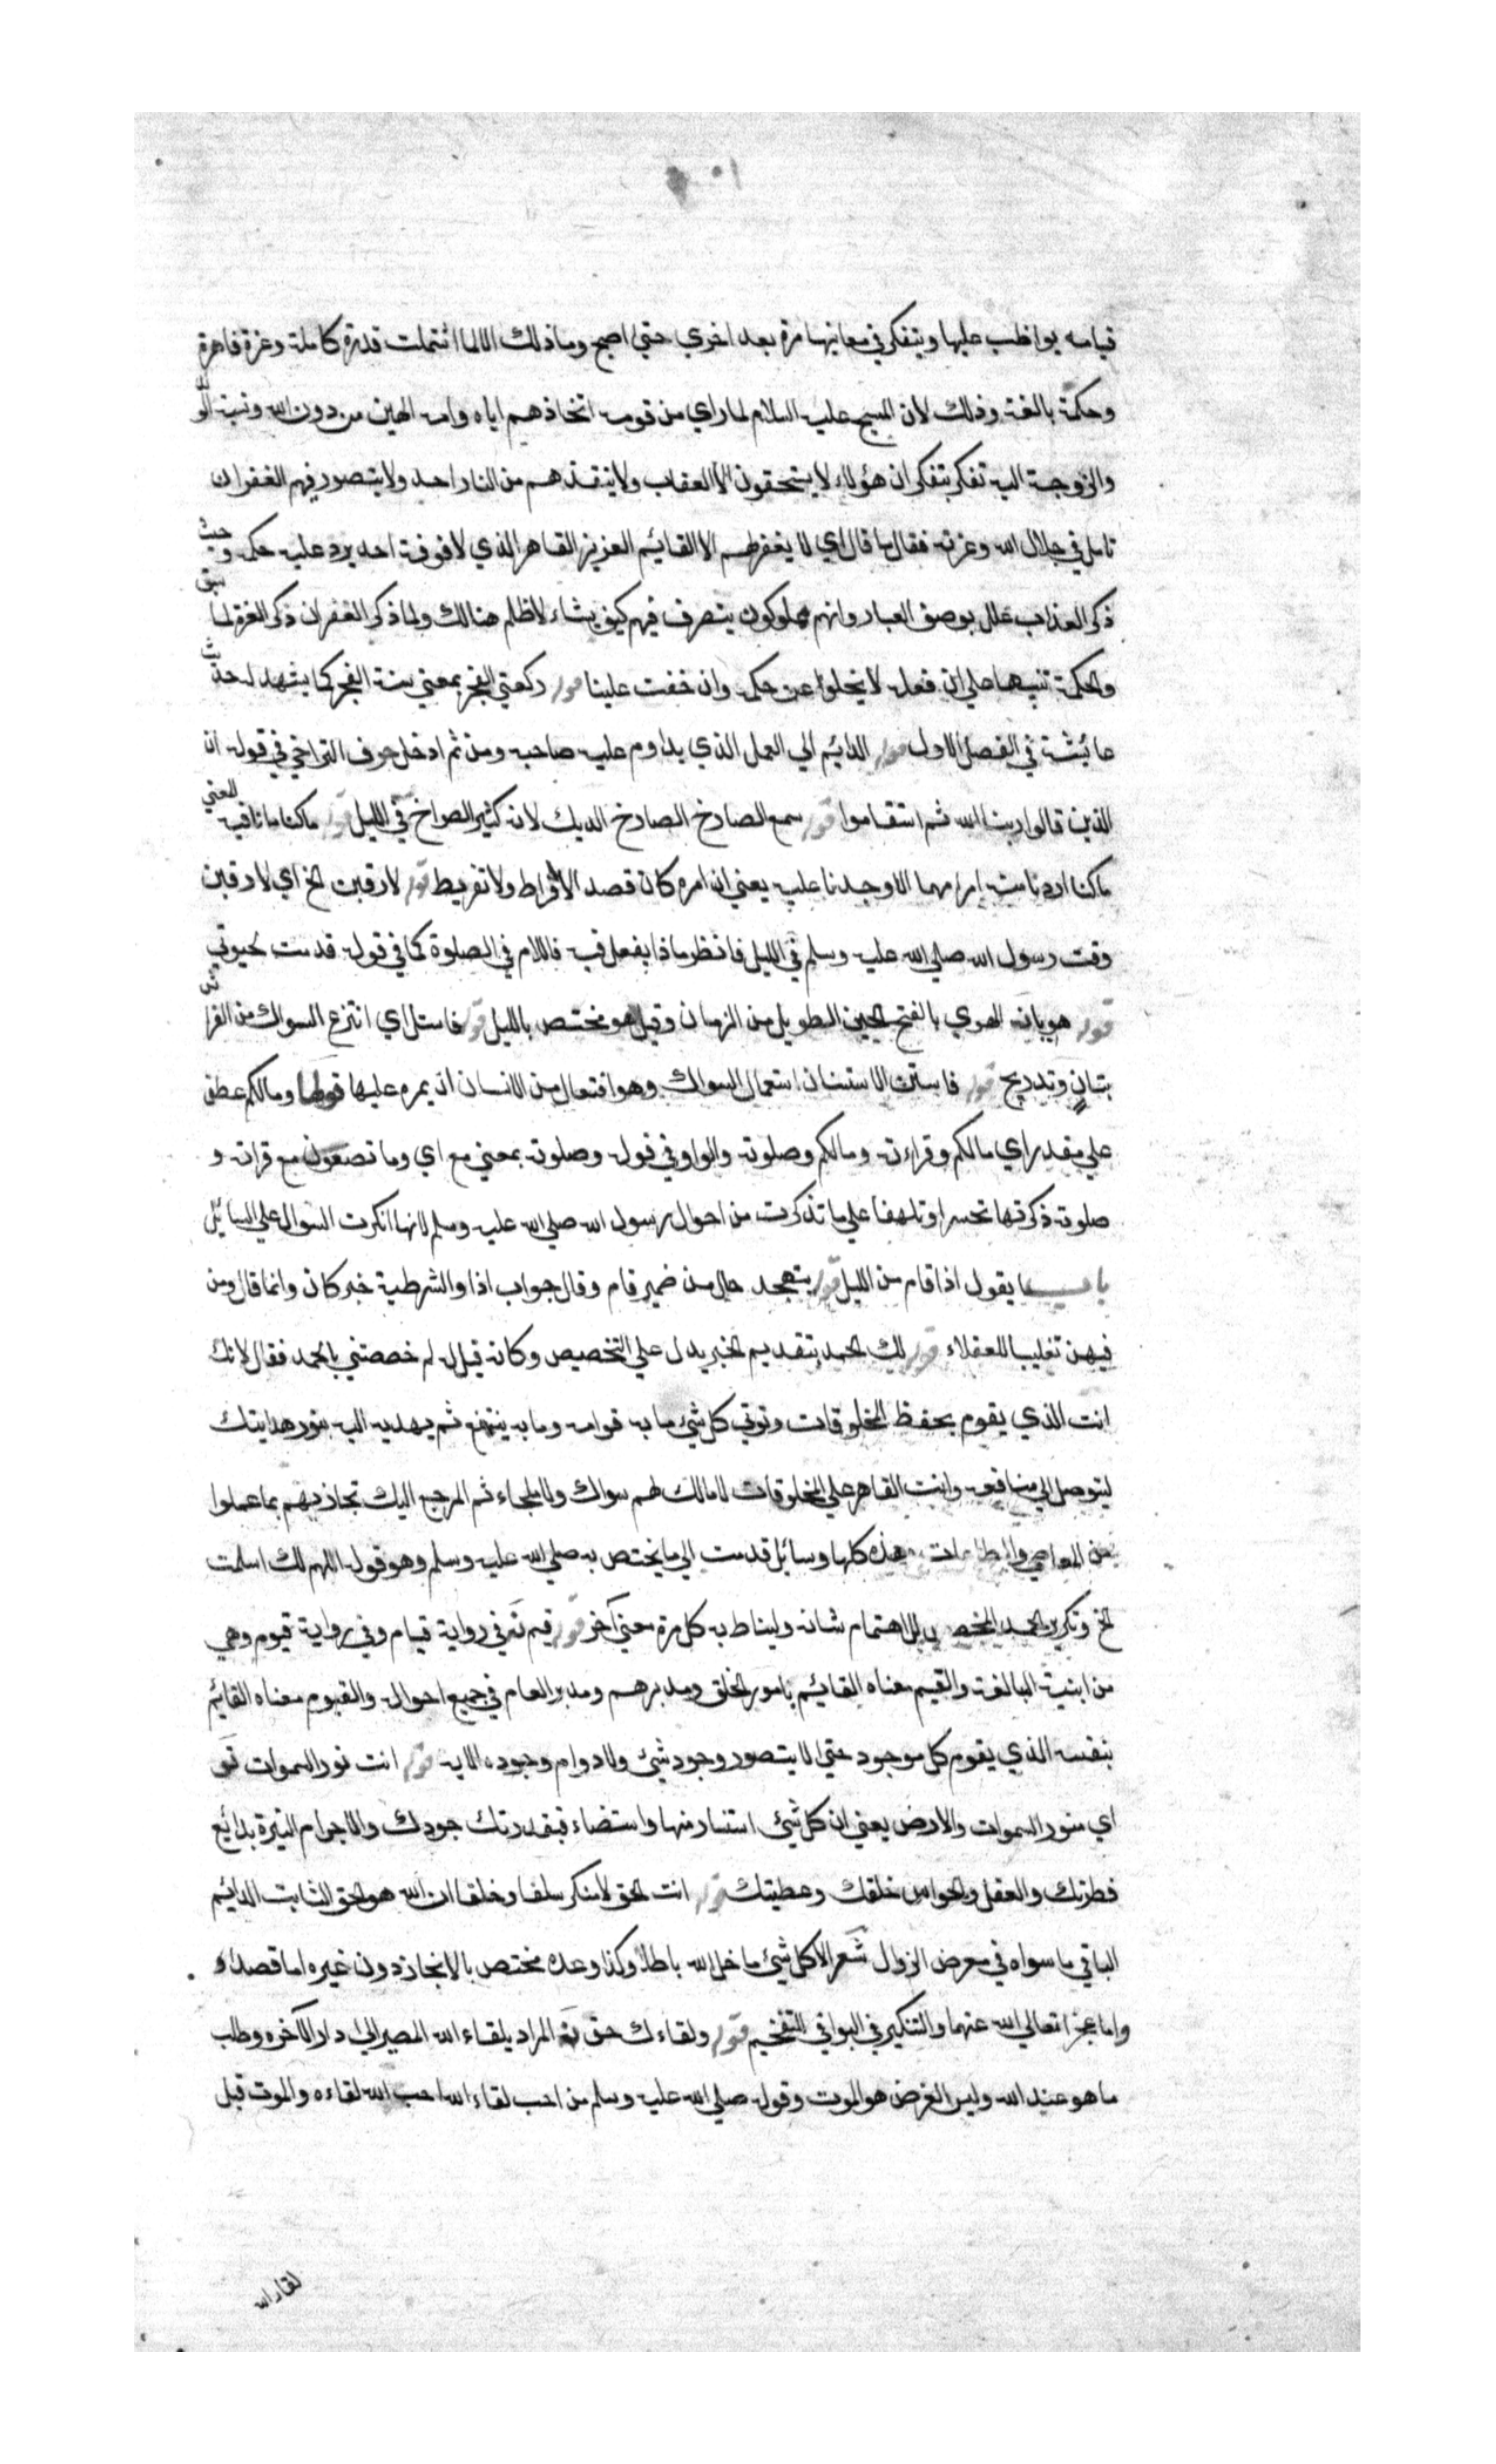 قيامه يواظب عليها ويتفكر في معانيها مرة بعد اخري حتي اصبح وما ذلك الا لما اشتملت قدرة كاملة وعزة قاهرة
وحكمة بالغة وذلك لان المسيح عليه السلام لما راي من قومه اتخاذهم اياه وامه الهين من دون الله ونسبة الو
والزوجية اليه تفكر بتفكر ان هؤلاء لا يستحقون الا العقاب ولا ينقذهم من النار احد ولا يتصور فيهم الغفران
تامل في جلال الله وعزته فقال ما قال اي لا يغفر لهم الا القائم العزيز القاهر الذي لا فوقه احد يرد عليه حكمه وحيث
ذكر العذاب علل بوصف العباد وانهم مملوكون يتصرف فيهم كيف يشاء لا ظلم هنالك ولما ذكر الغفران ذكر العزة لما سبق
والحكمة تنبيها علي ان فعله لا يخلوا عن حكمة وان خفت علينا قوله ركعتي الفجر بمعني سنة الفجر كما يشهد له حديث
عائشة في الفصل الاول قوله الدائم اي العمل الذي يداوم عليه صاحبه ومن ثم ادخل حرف التراخي في قوله ان
الذين قالوا ربنا الله ثم استقاموا قوله سمع الصارخ الصارخ الديك لانه كثير الصراخ في الليل قوله ما كنا ما نافية المعني
ما كنا اردنا منه امرا مهما الا وجدنا عليه يعني ان امره كان قصدا لا افراط ولا تفريط قوله لارقبن الخ اي لارقبن
وقت رسول الله صلي الله عليه وسلم في الليل فانظر ماذا يفعل فيه فاللام في الصلوة كما في قوله قدمت لحيوتي
قوله هويا نه الهوي بالفتح الحين الطويل من الزمان وقيل هو مختص بالليل قوله فاستل اي انتزع السواك من الفراش
بتأن وتدريج قوله فاستن الاستنان استعمال السواك وهو افتعال من الاسنان ان يمره عليها قولها وما لكم عطف
علي مقدر اي ما لكم وقراءته وما لكم وصلوته والواو في قوله وصلوته بمعني مع اي وما تصنعون مع قراته و
صلوته ذكرتها تحسرا وتلهفا علي ما تذكرت من احوال رسول الله صلي الله عليه وسلم لا انها انكرت السوال علي السائل
باب ما يقول اذا قام من الليل قوله يتهجد حال من ضمير قام وقال جواب اذا والشرطية خبر كان وانما قال ومن
فيهن تغليبا للعقلاء قوله لك الحمد تقديم الخبر يدل علي التخصيص وكانه قيل له لم خصصتني بالحمد فقال لانك
انت الذي يقوم بحفظ المخلوقات وتوتي كل شئ ما به قوامه وما به ينتفع ثم يهديه اليه بنور هدايتك
ليتوصل الي منافعه وانت القاهر علي المخلوقات لا مالك لهم سواك ولا ملجاء ثم المرجع اليك تجازيهم بما عملوا
من المعاصي والطاعات وهذه كلها وسائل قدمت الي ما يختص به صلي الله عليه وسلم وهو قوله اللهم لك اسلمت
الخ وتكرير الحمد المخصص للاهتمام بشانه وليناط به كل مرة معني آخر قوله قيم نه في رواية قيام وفي رواية قيوم وهي
من ابنية المبالغة والقيم معناه القائم بامور الخلق ومدبرهم ومدبر العام في جميع احواله والقيوم معناه القائم
بنفسه الذي يقوم كل موجود حتي لا يتصور وجود شئ ولا دوام وجوده الا به قوله انت نور السموات تو
اي منور السموات والارض يعني ان كل شئ استنار منها واستضاء فبقدرتك جودك والاجرام النيرة بدائع
فطرتك والعقل والحواس خلقك وعطيتك قوله انت الحق لا منكر سلفا وخلفا ان الله هو الحق الثابت الدائم
الباقي ما سواه في معرض الزوال شعر الا كل شئ ما خلا الله باطل وكذا وعده مختص بالانجاز دون غيره اما قصدا و
واما عجزا تعالي الله عنهما والتنكير في البواقي للتفخيم قوله ولقاءك حق نه المراد بلقاء الله المصير الي دار الآخره وطلب
ما هو عند الله وليس الغرض هو الموت وقوله صلي الله عليه وسلم من احب لقاء الله احب الله لقاءه والموت قبل
لقاء الله